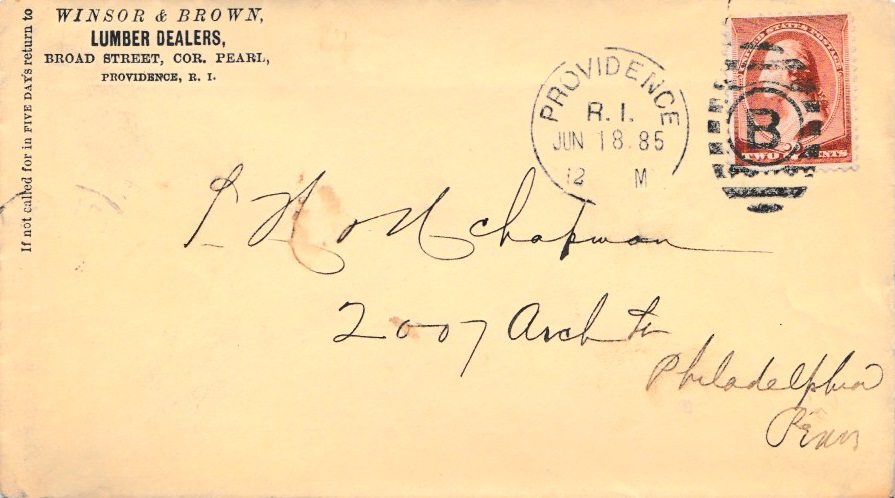 WINSOR & BROWN,
LUMBER DEALERS,
BROAD STREET, COR. PEARL,
PROVIDENCE, R. I.
If not called for in FIVE DAYS return to
PROVIDENCE
R. I.
JUN 18 85
12 M
UNITED STATES POSTAGE
B
TWO CENTS
Chapman
2007 Arch
Philadelphia
Penn